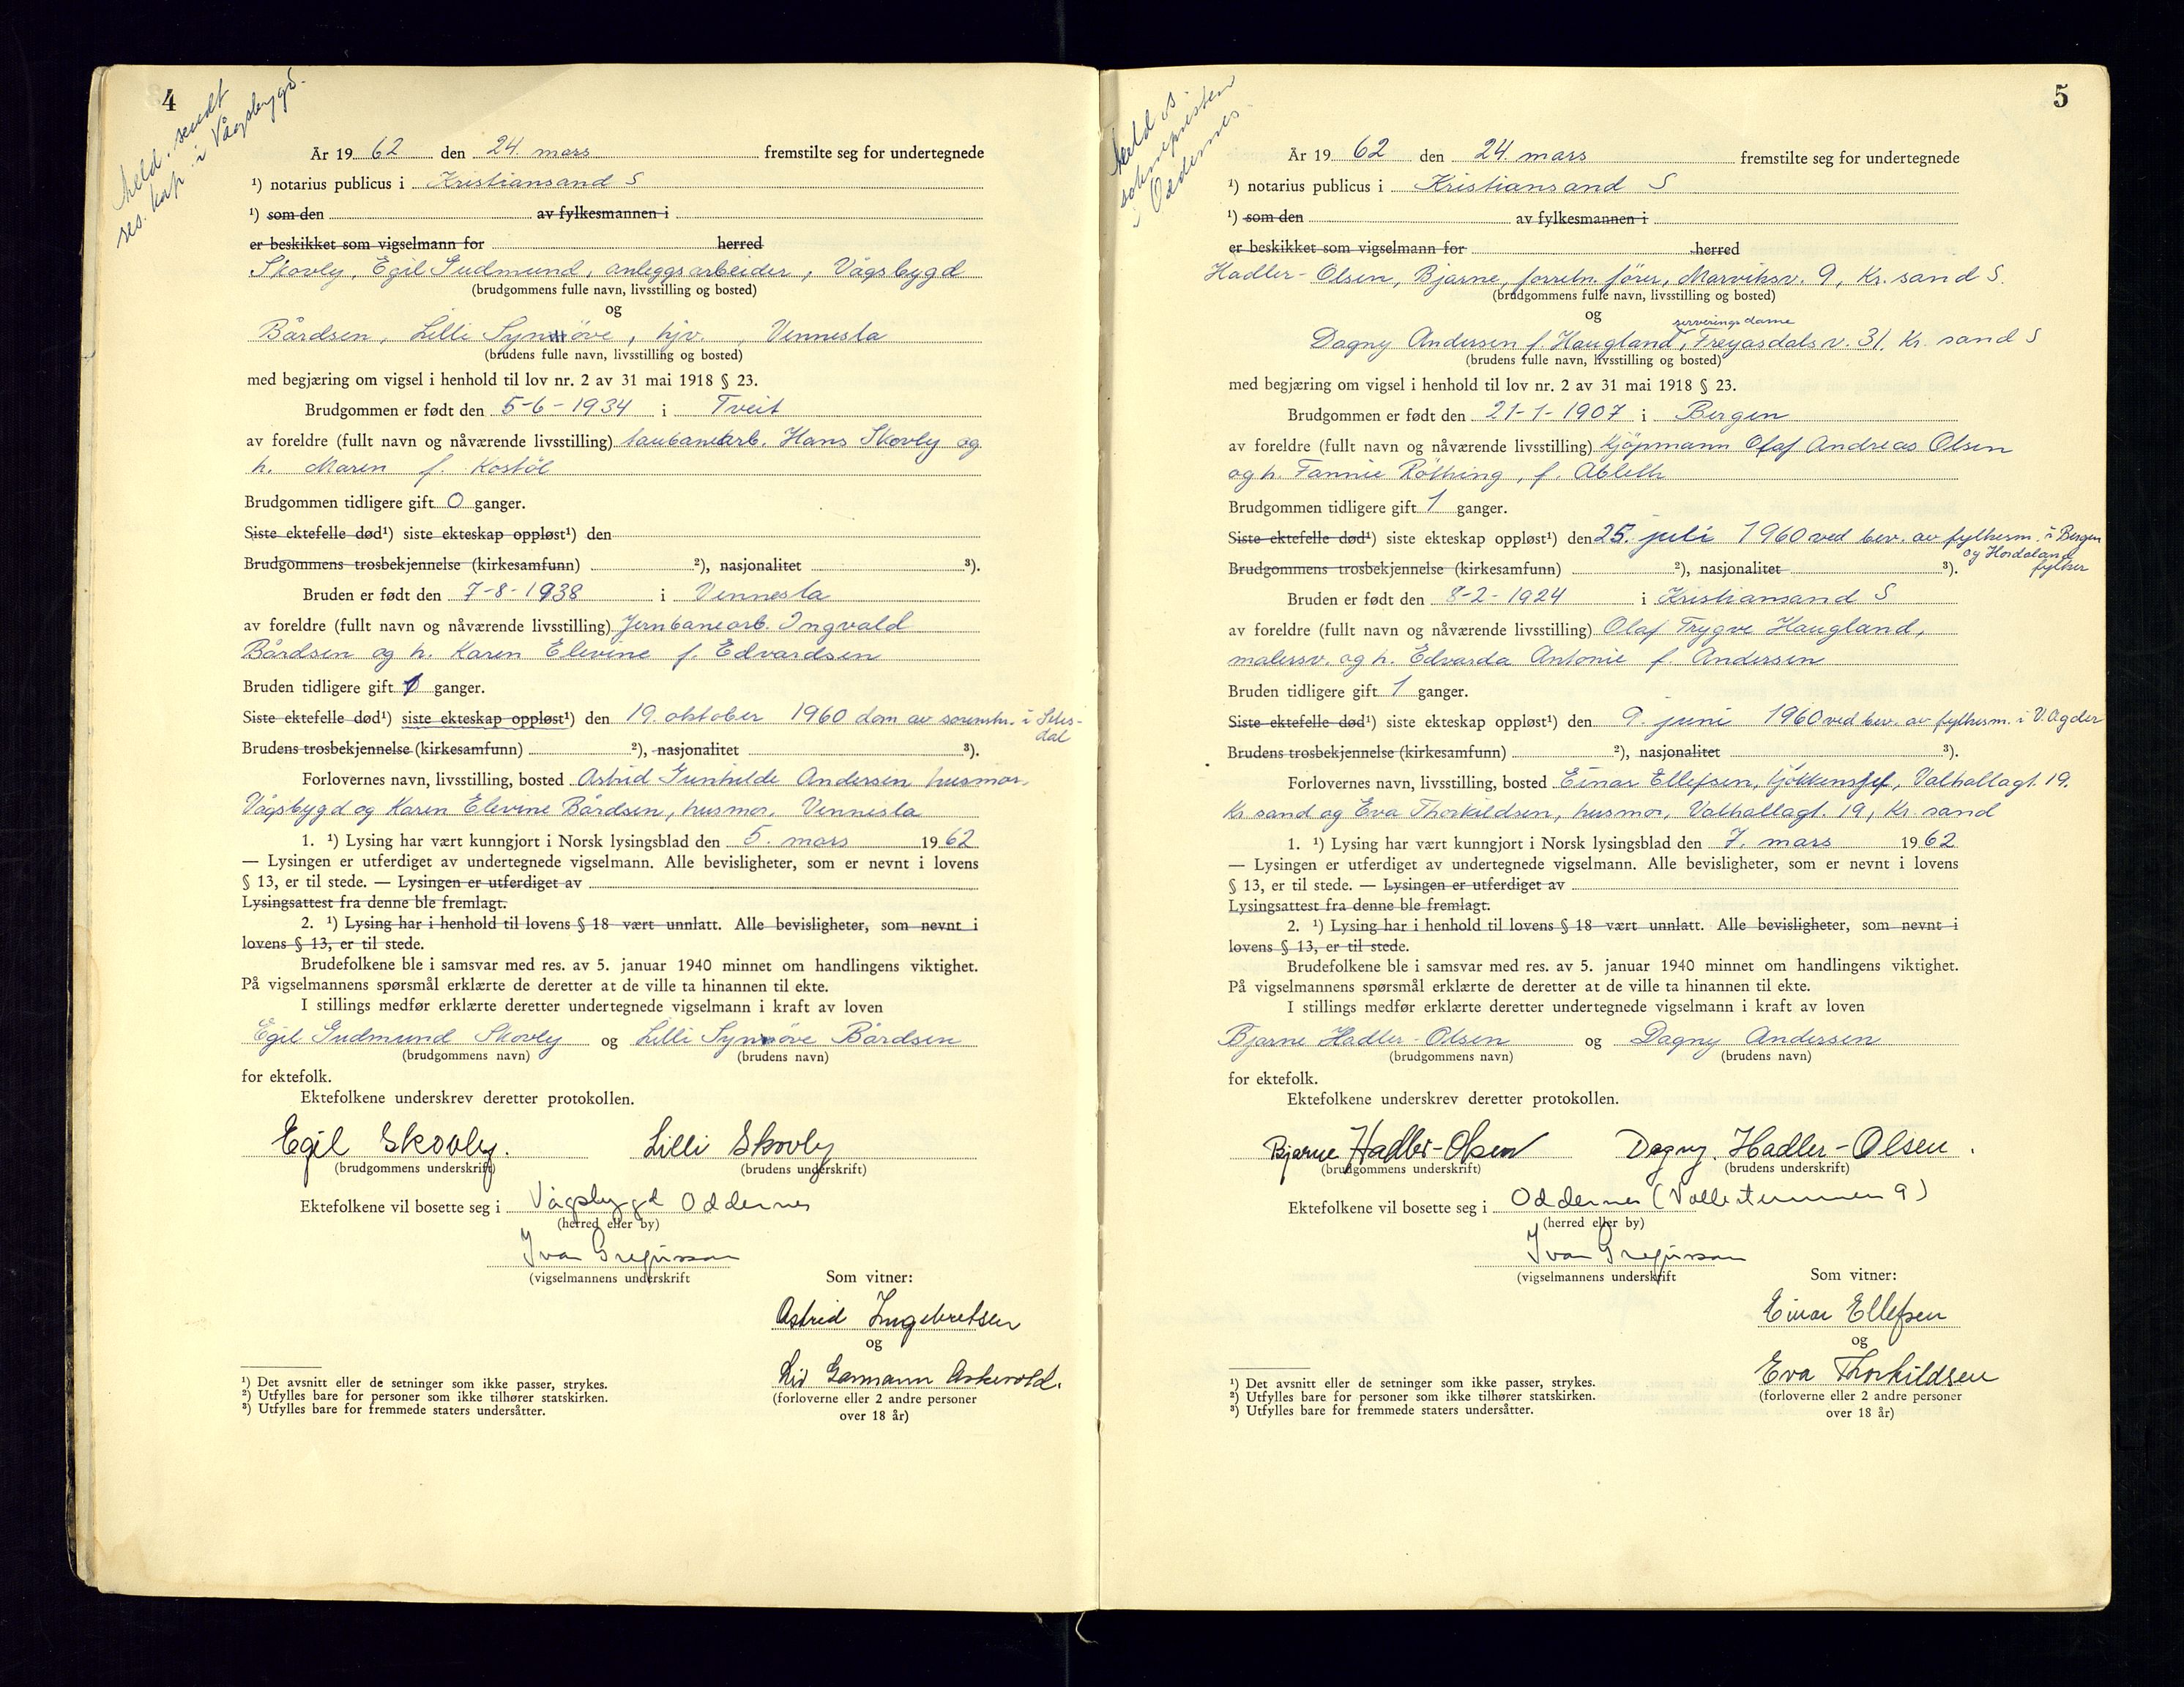 4
Meld. sendt
res. kap. i Vågsbygd.
År 19 62 den 24. mars fremstilte seg for undertegnede
¹) notarius publicus i Kristiansand S
¹) som den av fylkesmannen i
er beskikket som vigselmann for herred
Skovly, Egil Gudmund, anleggsarbeider, Vågsbygd
(brudgommens fulle navn, livsstilling og bosted)
og
Bårdsen, Lilli Synnöve, hjv. , Vennesla
(brudens fulle navn, livsstilling og bosted)
med begjæring om vigsel i henhold til lov nr. 2 av 31 mai 1918 § 23.
Brudgommen er født den 5-6-1934 i Tveit
av foreldre (fullt navn og nåværende livsstilling) taubanearb. Hans Skovly og
h. Maren f. Kostöl
Brudgommen tidligere gift 0 ganger.
Siste ektefelle død¹) siste ekteskap oppløst¹) den
Brudgommens trosbekjennelse (kirkesamfunn) ²), nasjonalitet ³).
Bruden er født den 7-8-1938 i Vennesla
av foreldre (fullt navn og nåværende livsstilling) Jernbanearb. Ingvald
Bårdsen og h. Karen Elevine f. Edvardsen
Bruden tidligere gift 1 ganger.
Siste ektefelle død¹) siste ekteskap oppløst¹) den 19. oktober 1960 dom av sorenskr. i Setes-
dal
Brudens trosbekjennelse (kirkesamfunn) ²), nasjonalitet ³).
Forlovernes navn, livsstilling, bosted Astrid Gunhilde Andersen husmor,
Vågsbygd og Karen Elevine Bårdsen, husmor, Vennesla
1. ¹) Lysing har vært kunngjort i Norsk lysingsblad den 5. mars 19 62
— Lysingen er utferdiget av undertegnede vigselmann. Alle bevisligheter, som er nevnt i lovens
§ 13, er til stede. — Lysingen er utferdiget av
Lysingsattest fra denne ble fremlagt.
2. ¹) Lysing har i henhold til lovens § 18 vært unnlatt. Alle bevisligheter, som nevnt i
lovens § 13, er til stede.
Brudefolkene ble i samsvar med res. av 5. januar 1940 minnet om handlingens viktighet.
På vigselmannens spørsmål erklærte de deretter at de ville ta hinannen til ekte.
I stillings medfør erklærte deretter undertegnede vigselmann i kraft av loven
Egil Gudmund Skovly og Lilli Synnöve Bårdsen
(brudgommens navn) (brudens navn)
for ektefolk.
Ektefolkene underskrev deretter protokollen.
Egil Skovly. Lilli Skovly
(brudgommens underskrift) (brudens underskrift)
Ektefolkene vil bosette seg i Vågsbygd Oddernes
(herred eller by)
Ivar Gregusson
(vigselmannens underskrift
Som vitner:
Astrid Ingebretsen
og
Liv Garmann Askevold.
(forloverne eller 2 andre personer
over 18 år)
¹) Det avsnitt eller de setninger som ikke passer, strykes.
²) Utfylles bare for personer som ikke tilhører statskirken.
³) Utfylles bare for fremmede staters undersåtter.
5
Meld s.
soknepresten
i Oddernes
År 19 62 den 24. mars fremstilte seg for undertegnede
¹) notarius publicus i Kristiansand S
¹) som den av fylkesmannen i
er beskikket som vigselmann for herred
Hadler-Olsen, Bjarne, forretn.förer, Marviksv. 9, Kr.sand S.
(brudgommens fulle navn, livsstilling og bosted)
og
serveringsdame
Dagny Andersen f. Haugland, Freyasdalsv. 31. Kr. sand S
(brudens fulle navn, livsstilling og bosted)
med begjæring om vigsel i henhold til lov nr. 2 av 31 mai 1918 § 23.
Brudgommen er født den 21-1-1907 i Bergen
av foreldre (fullt navn og nåværende livsstilling) Kjöpmann Olaf Andreas Olsen
og h. Fannie Röthing, f. Ableth
Brudgommen tidligere gift 1 ganger.
Siste ektefelle død¹) siste ekteskap oppløst¹) den 25. juli 1960 ved bev. av fylkesm. i Bergen
og Hordaland
fylker
Brudgommens trosbekjennelse (kirkesamfunn) ²), nasjonalitet ³).
Bruden er født den 8-2-1924 i Kristiansand S
av foreldre (fullt navn og nåværende livsstilling) Olaf Trygve Haugland,
malersv. og h. Edvarda Antonie f. Andersen
Bruden tidligere gift 1 ganger.
Siste ektefelle død¹) siste ekteskap oppløst¹) den 9. juni 1960 ved bev. av fylkesm. i V. Agder
Brudens trosbekjennelse (kirkesamfunn) ²), nasjonalitet ³).
Forlovernes navn, livsstilling, bosted Einar Ellefsen, kjökkensjef, Valhallagt. 19.
Kr. sand og Eva Thorkildsen, husmor, Valhallagt. 19, Kr. sand
1. ¹) Lysing har vært kunngjort i Norsk lysingsblad den 7. mars 19 62
— Lysingen er utferdiget av undertegnede vigselmann. Alle bevisligheter, som er nevnt i lovens
§ 13, er til stede. — Lysingen er utferdiget av
Lysingsattest fra denne ble fremlagt.
2. ¹) Lysing har i henhold til lovens § 18 vært unnlatt. Alle bevisligheter, som nevnt i
lovens § 13, er til stede.
Brudefolkene ble i samsvar med res. av 5. januar 1940 minnet om handlingens viktighet.
På vigselmannens spørsmål erklærte de deretter at de ville ta hinannen til ekte.
I stillings medfør erklærte deretter undertegnede vigselmann i kraft av loven
Bjarne Hadler-Olsen og Dagny Andersen
(brudgommens navn) (brudens navn)
for ektefolk.
Ektefolkene underskrev deretter protokollen.
Bjarne Hadler-Olsen Dagny. Hadler-Olsen.
(brudgommens underskrift) (brudens underskrift)
Ektefolkene vil bosette seg i Oddernes (Vollestemmen 9)
(herred eller by)
Ivar Gregusson
(vigselmannens underskrift
Som vitner:
Einar Ellefsen
og
Eva Thorkildsen
(forloverne eller 2 andre personer
over 18 år)
¹) Det avsnitt eller de setninger som ikke passer, strykes.
²) Utfylles bare for personer som ikke tilhører statskirken.
³) Utfylles bare for fremmede staters undersåtter.